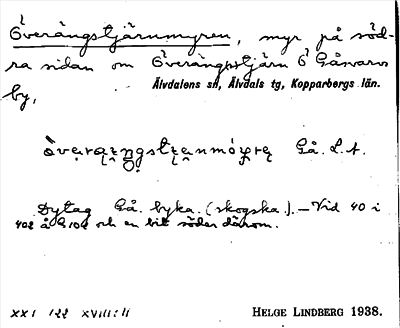 Överängstjärnmyren, myr på söd-
ra sidan om Överängstjärn Ö Gåsvarvs
Älvdalens sn, Älvdals tg, Kopparbergs län.
by.
Gå. L. A.
Dytag Gå. byka. (skogska.). – Vid 40 i
402 å G 102 och en bit söder därom.
XXI 122 XVIII:11 HELGE LINDBERG 1938.